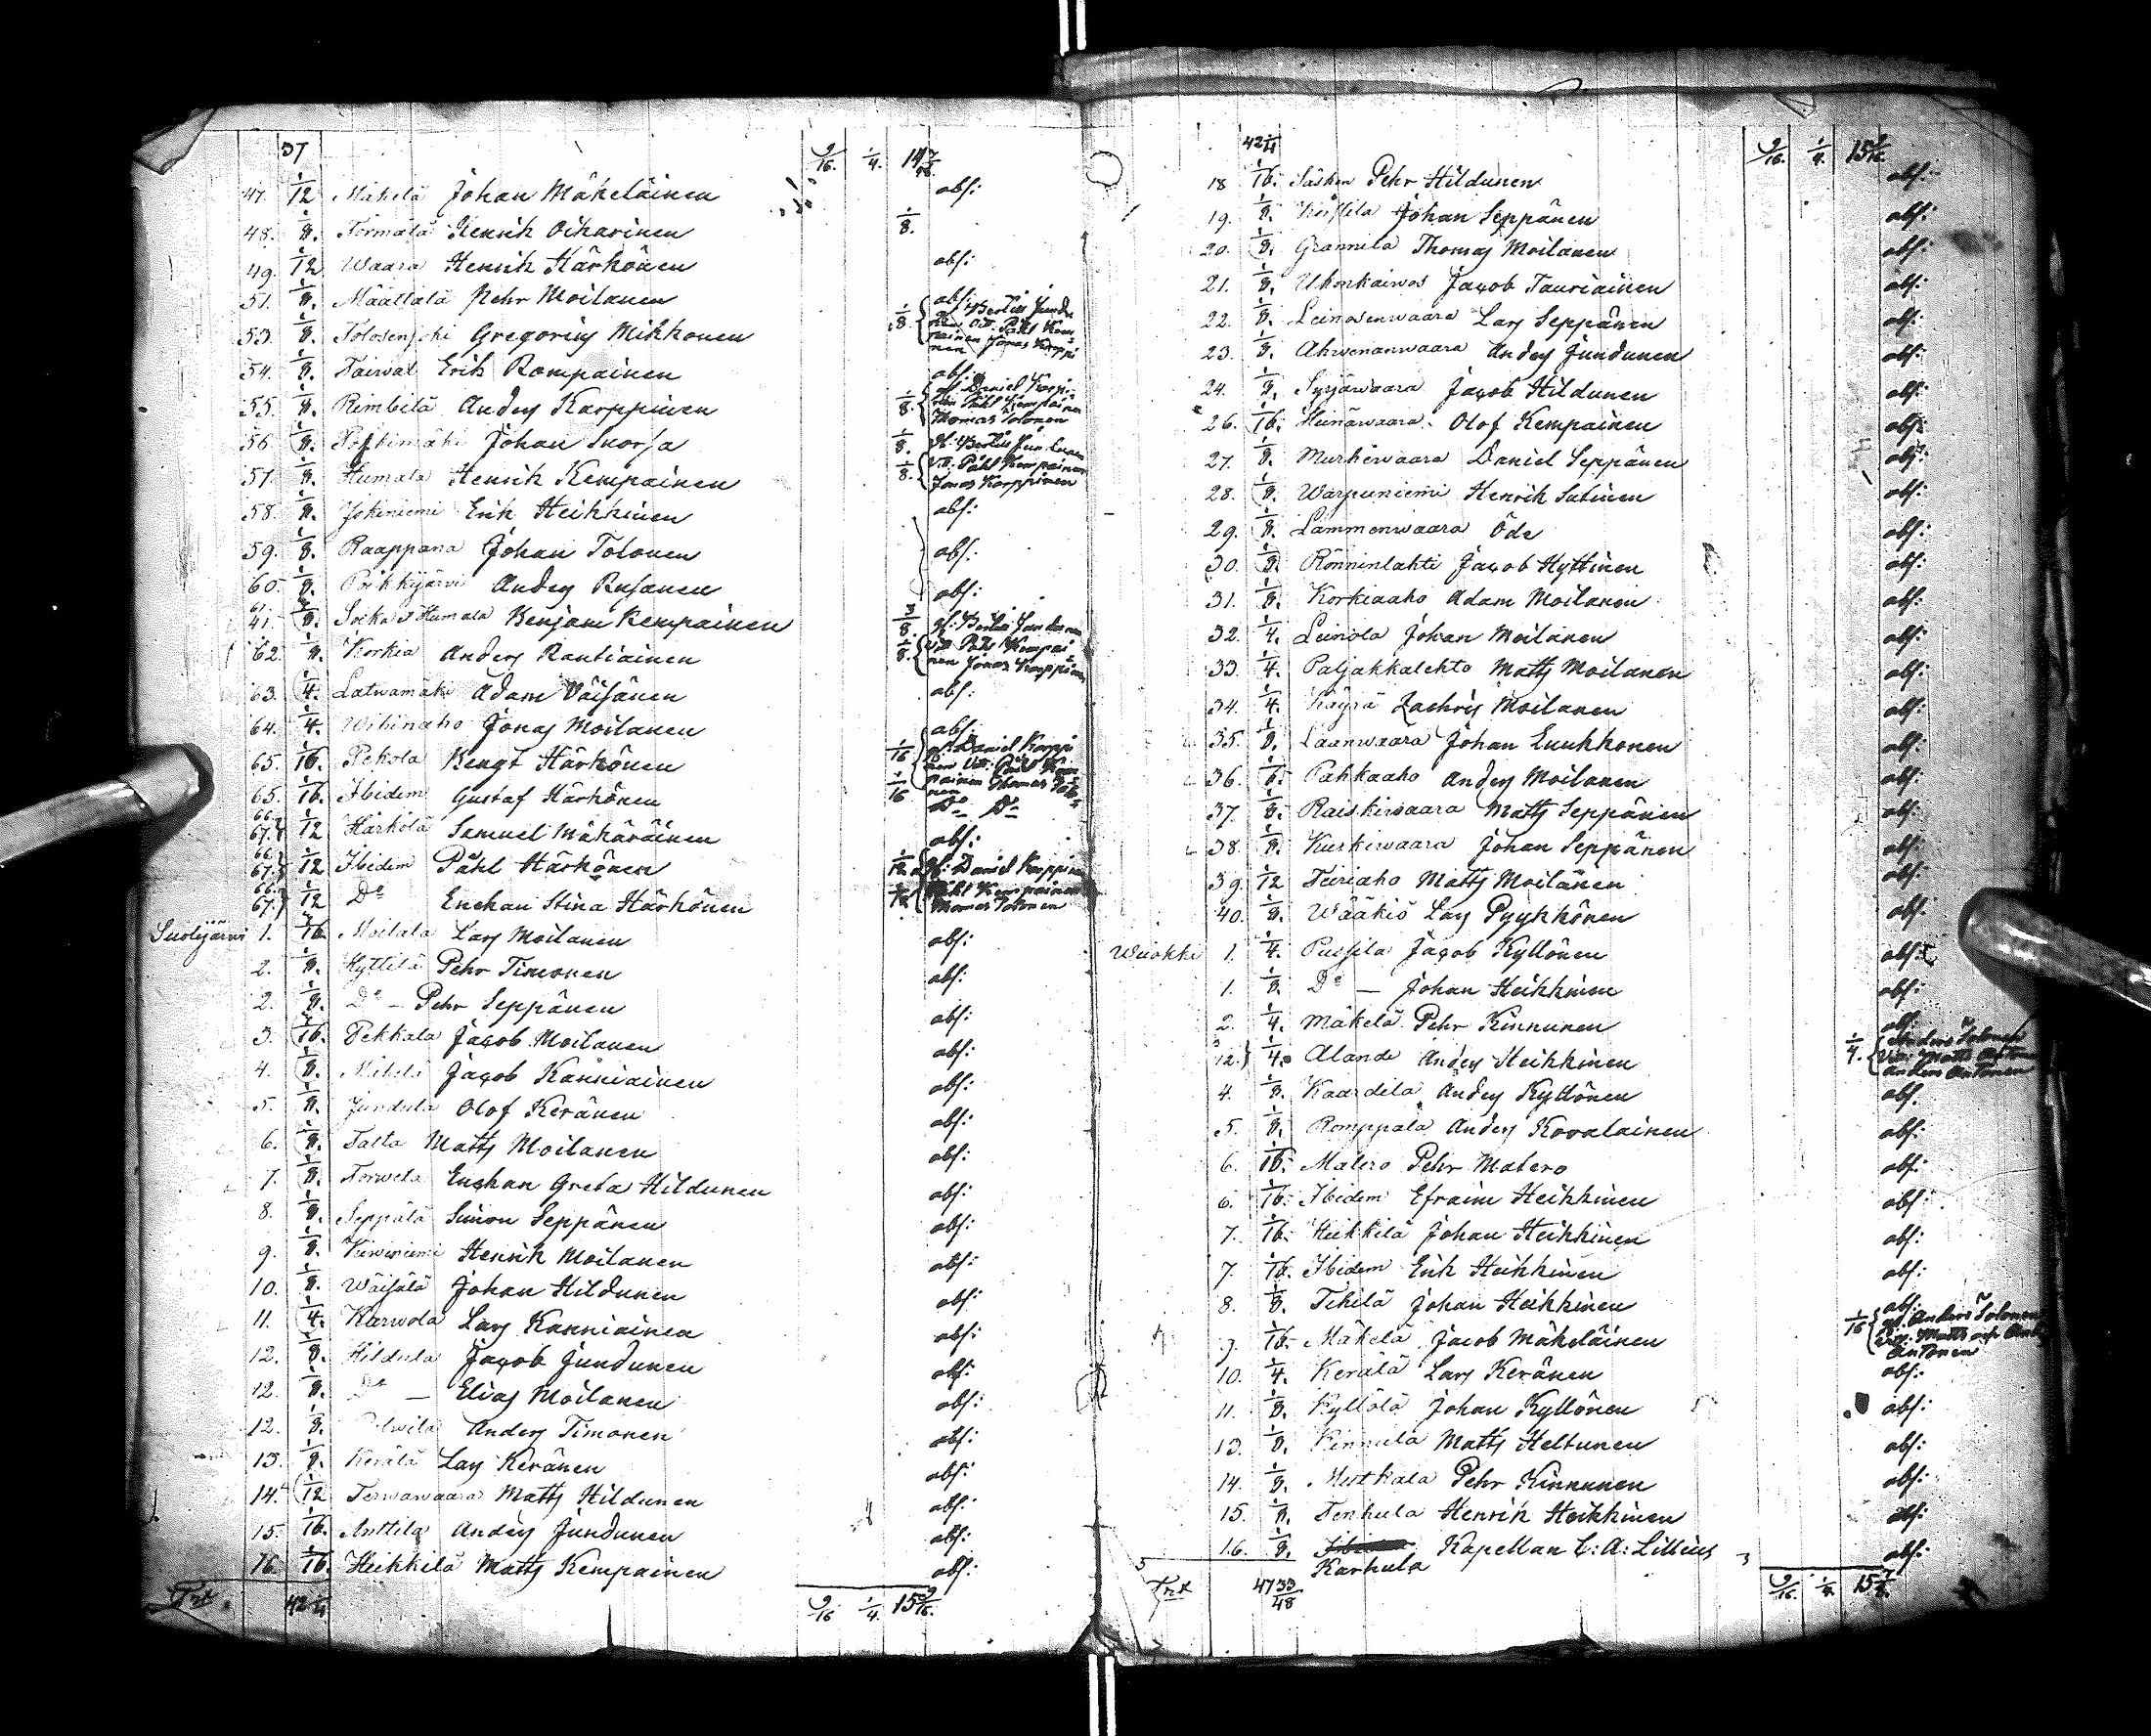 37 9/16. 1/4. 14 7/16.
47. 1/12 Mäkelä Johan Mäkeläinen abs:
48. 1/8. Törmälä Henrik Oikarinen 1/8.
49. 1/12 Waara Henrik Härkönen abs:
51. 1/8. Määttälä Pehr Moilanen abs:
53. 1/8. Tolosenjoki Gregorius Mikkonen 1/8.
54. 1/8. Taival Erik Rompainen abs.
55. 1/8. Rimbilä Anders Karppinen 1/8. Thomas Tolonen
56. 1/8. Johan Snorsa 1/8.
57. 1/8. Humala Henrik Kempainen 1/8. Påhl Kempainen Jonas Karppinen
58. 1/8. Jokiniemi Erik Heikkinen abs:
59. 1/8. Raappana Johan Tolonen abs:
60. 1/8. Poikkijärvi Anders Rusanen abs:
61. 41. 3/8. Humala Benjam Kempainen 3/8
62. 1/8. Korkia Anders Rautiainen 1/8.
63. 1/4. Latwamäki Adam Väisänen abs:
64. 1/4. Wihinaho Jonas Moilanen abs:
65. 1/16. Pekola Bengt Härkönen 1/16
65. 1/16. Ibidem Gustaf Härkönen 1/16 Do Do
66. 67. 1/12 Härkölä Samuel Mäkäräinen abs:
66. 67. 1/12 Ibidem Påhl Härkönen 1/12 Daniel Karppinen
66. 67. 1/12 Do Enekan Stina Härkönen 1/12 Påhl Kempainen Thomas Tolonen
Suolijärvi 1. Moilala Lars Moilanen abs:
2. 1/8. Kyttilä Pehr Timonen abs:
2. 1/8. Do — Pehr Seppänen abs:
3. Pekkala Jacob Moilanen abs:
4. 1/8. Mikkilä Jacob Kanniainen abs:
5. 1/8. Jundula Olof Keränen abs:
6. 1/8. Talta Matts Moilanen abs:
7. 1/8. Torwela Enchan Greta Hildunen abs:
8. 1/8. Seppälä Simon Seppänen abs:
9. 1/8. Kiwiniemi Henrik Moilanen abs:
10. 1/8. Wäisälä Johan Hildunen abs:
11. 1/4. Karwola Lars Kanniainen abs:
12. 1/8. Hildula Jacob Jundunen abs:
12. 1/8. Do — Elias Moilanen abs:
12. 1/8. Anders Timonen abs:
13. 1/8. Kerälä Lars Keränen abs:
14. 1/12 Terwawaara Matts Hildunen abs:
15. 1/16. Anttila Anders Jundunen abs:
16. 1/16. Heikkilä Matts Kempainen abs:
Trt. 9/16 1/4. 15 9/16.
9/16. 1/4. 15 9/16.
18 1/16. Säsken Pehr Hildunen abs:
19. 1/8. Koistila Johan Seppänen abs:
20. 1/8. Grannila Thomas Moilanen abs:
21. 1/8. Ukonkaivos Jacob Tauriainen abs:
22. 1/8. Leinosenwaara Lars Seppänen abs:
23. 1/8. Ahwenanwaara Anders Jundunen abs:
24. 1/8. Syrjäwaara Jacob Hildunen abs:
26. 1/16. Heinäwaara Olof Kempainen abs:
27. 1/8. Murhiwaara Daniel Seppänen abs:
28. 1/8. Warpuniemi Henrik Sutinen abs:
29. 1/8. Lammenwaara Öde abs:
30. 1/8. Rönninlahti Jacob Hyttinen abs:
31. 1/8. Korkiaaho Adam Moilanen abs:
32. 1/4. Leinola Johan Moilanen abs:
33. 1/4. Paljakkalehto Matts Moilanen abs:
34. 1/4. Käyrä Zachris Moilanen abs:
35. 1/8. Laanwaara Johan Luukkonen abs:
36. 1/6. Pahkaaho Anders Moilanen abs:
37. 1/8. Raiskiwaara Matts Seppänen abs:
38. 1/8. Kurkiwaara Johan Seppänen abs:
39. 1/12 Teiriaho Matts Moilanen abs:
40. 1/8. Wääkiö Lars Pyykkönen abs:
Wuokki 1. 1/4. Pussila Jacob Kyllönen abs:
1. 1/8. Do — Johan Heikkinen abs:
2. 1/4. Mäkelä Pehr Kinnunen abs:
12. 1/4. Alande Anders Heikkinen 1/4. Anders Tolonen Matts Anders Antonen
4. 1/8. Kaardila Anders Kyllönen abs.
5. 1/8. Romppala Anders Kovalainen abs:
6. 1/16. Matero Pehr Matero abs:
6. 1/16. Ibidem Efraim Heikkinen abs:
7. 1/16. Heikkilä Johan Heikkinen abs:
7. 1/16. Ibidem Erik Heikkinen abs:
8. 1/8. Tikilä Johan Heikkinen abs:
9. 1/16. Mäkelä Jacob Mäkeläinen 1/16 Anders Tolonen Matts och Antonen
10. 1/4. Kerälä Lars Keränen abs:
11. 1/8. Kyllölä Johan Kyllönen abs:
13. 1/8. Kinnula Matts Heltunen abs:
14. 1/8. Mustkala Pehr Kinnunen abs:
15. 1/8. Tenhula Henrik Heikkinen abs:
16. 1/8. Kapellan C: A: Lillius abs:
Karhula
Trt 47 33/48 9/16. 1/4.